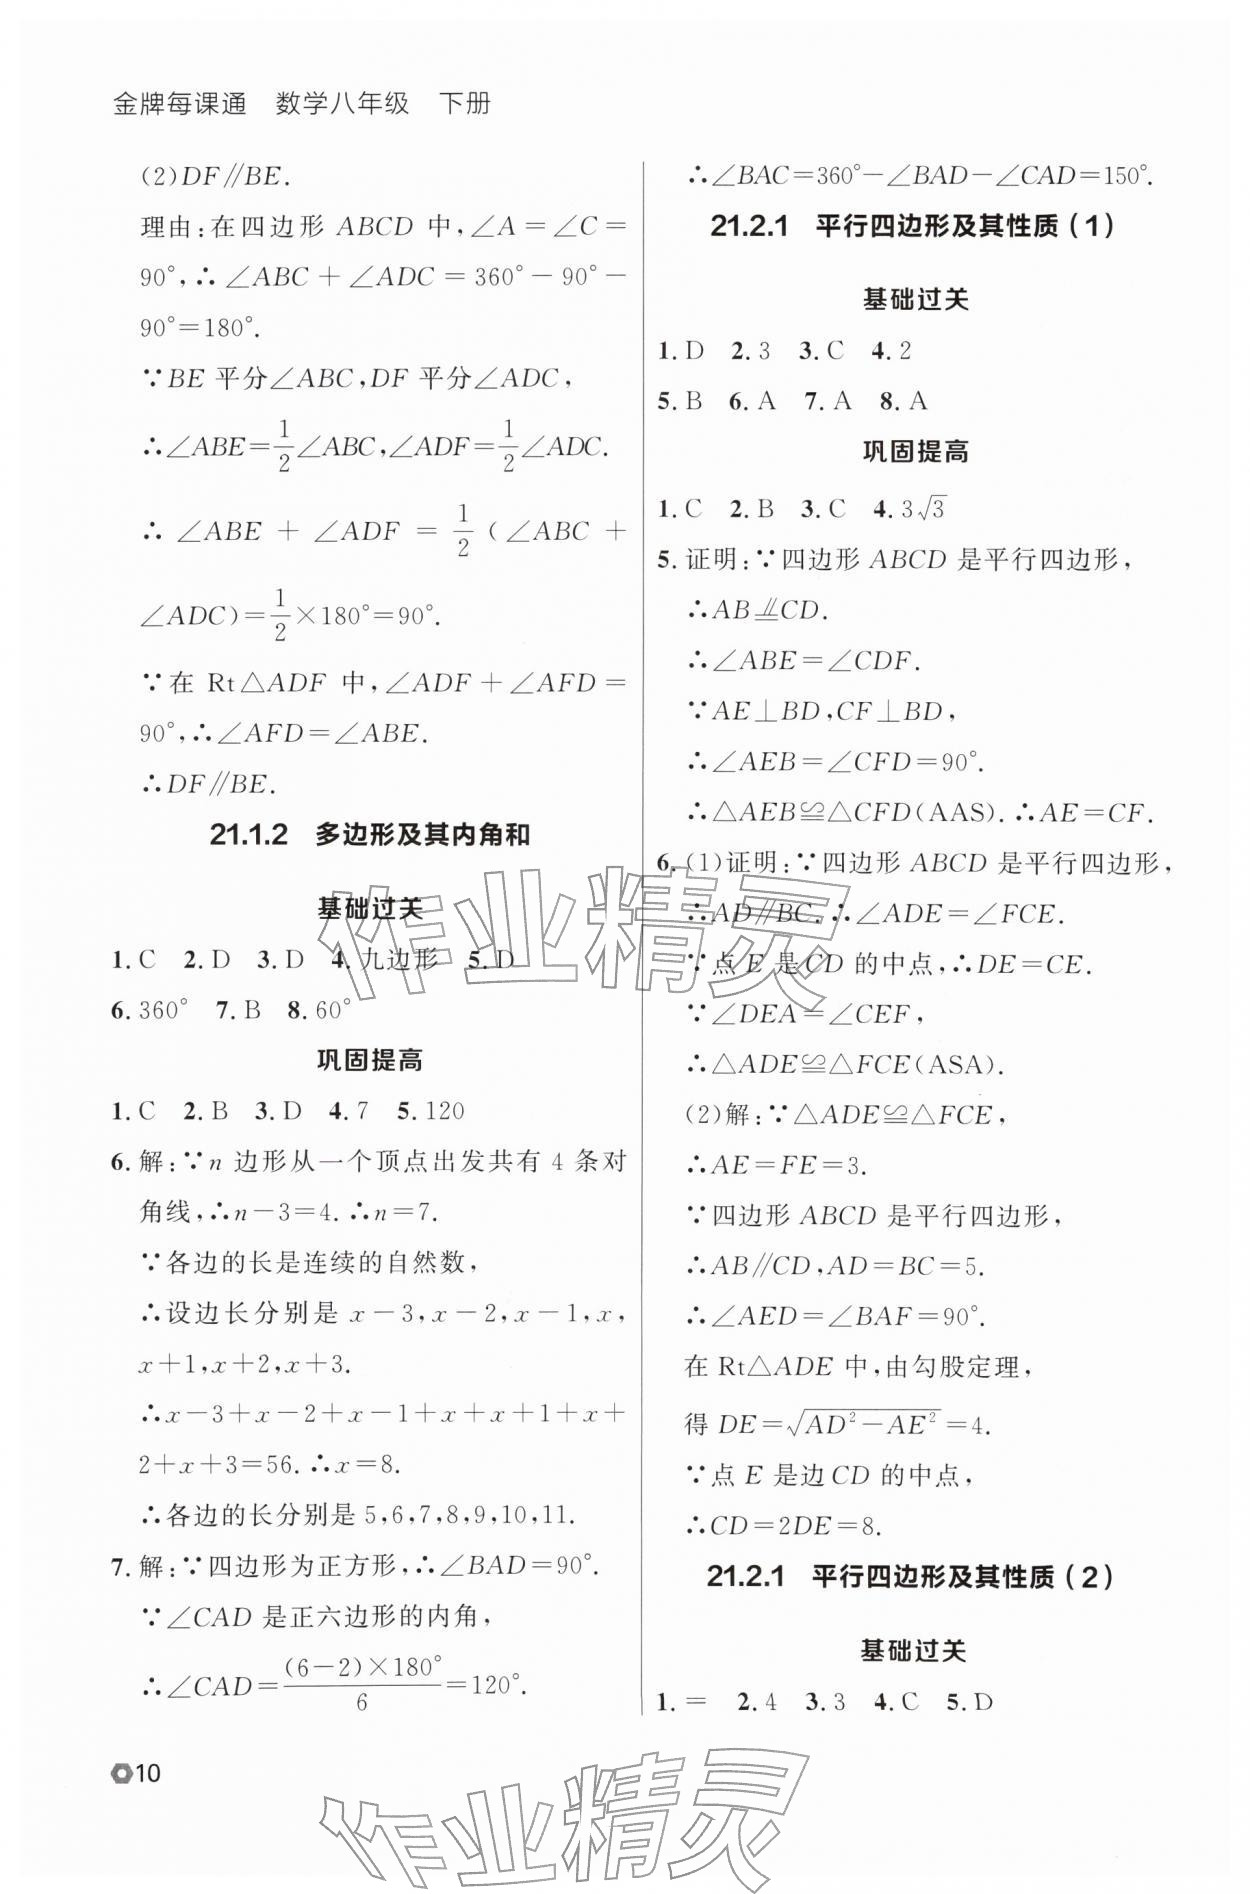 金牌每课通　数学八年级　下册
(2)DF∥BE.
理由:在四边形 ABCD 中,∠A=∠C=
90°,∴∠ABC+∠ADC=360°-90°-
90°=180°.
∵BE 平分∠ABC,DF 平分∠ADC,
∴∠ABE=1/2∠ABC,∠ADF=1/2∠ADC.
∴∠ABE+∠ADF=1/2(∠ABC+
∠ADC)=1/2×180°=90°.
∵在 Rt△ADF 中,∠ADF+∠AFD=
90°,∴∠AFD=∠ABE.
∴DF∥BE.
21.1.2　多边形及其内角和
基础过关
1.C　2.D　3.D　4.九边形　5.D
6.360°　7.B　8.60°
巩固提高
1.C　2.B　3.D　4.7　5.120
6.解:∵n 边形从一个顶点出发共有 4 条对
角线,∴n-3=4.∴n=7.
∵各边的长是连续的自然数,
∴设边长分别是 x-3,x-2,x-1,x,
x+1,x+2,x+3.
∴x-3+x-2+x-1+x+x+1+x+
2+x+3=56.∴x=8.
∴各边的长分别是 5,6,7,8,9,10,11.
7.解:∵四边形为正方形,∴∠BAD=90°.
∵∠CAD 是正六边形的内角,
∴∠CAD=(6-2)×180°/6=120°.
∴∠BAC=360°-∠BAD-∠CAD=150°.
21.2.1　平行四边形及其性质(1)
基础过关
1.D　2.3　3.C　4.2
5.B　6.A　7.A　8.A
巩固提高
1.C　2.B　3.C　4.3√3
5.证明:∵四边形 ABCD 是平行四边形,
∴AB⫽CD.
∴∠ABE=∠CDF.
∵AE⊥BD,CF⊥BD,
∴∠AEB=∠CFD=90°.
∴△AEB≌△CFD(AAS).∴AE=CF.
6.(1)证明:∵四边形 ABCD 是平行四边形,
∴AD∥BC.∴∠ADE=∠FCE.
∵点 E 是 CD 的中点,∴DE=CE.
∵∠DEA=∠CEF,
∴△ADE≌△FCE(ASA).
(2)解:∵△ADE≌△FCE,
∴AE=FE=3.
∵四边形 ABCD 是平行四边形,
∴AB∥CD,AD=BC=5.
∴∠AED=∠BAF=90°.
在 Rt△ADE 中,由勾股定理,
得 DE=√(AD²-AE²)=4.
∵点 E 是边 CD 的中点,
∴CD=2DE=8.
21.2.1　平行四边形及其性质(2)
基础过关
1.=　2.4　3.3　4.C　5.D
10
作业精灵
作业精灵